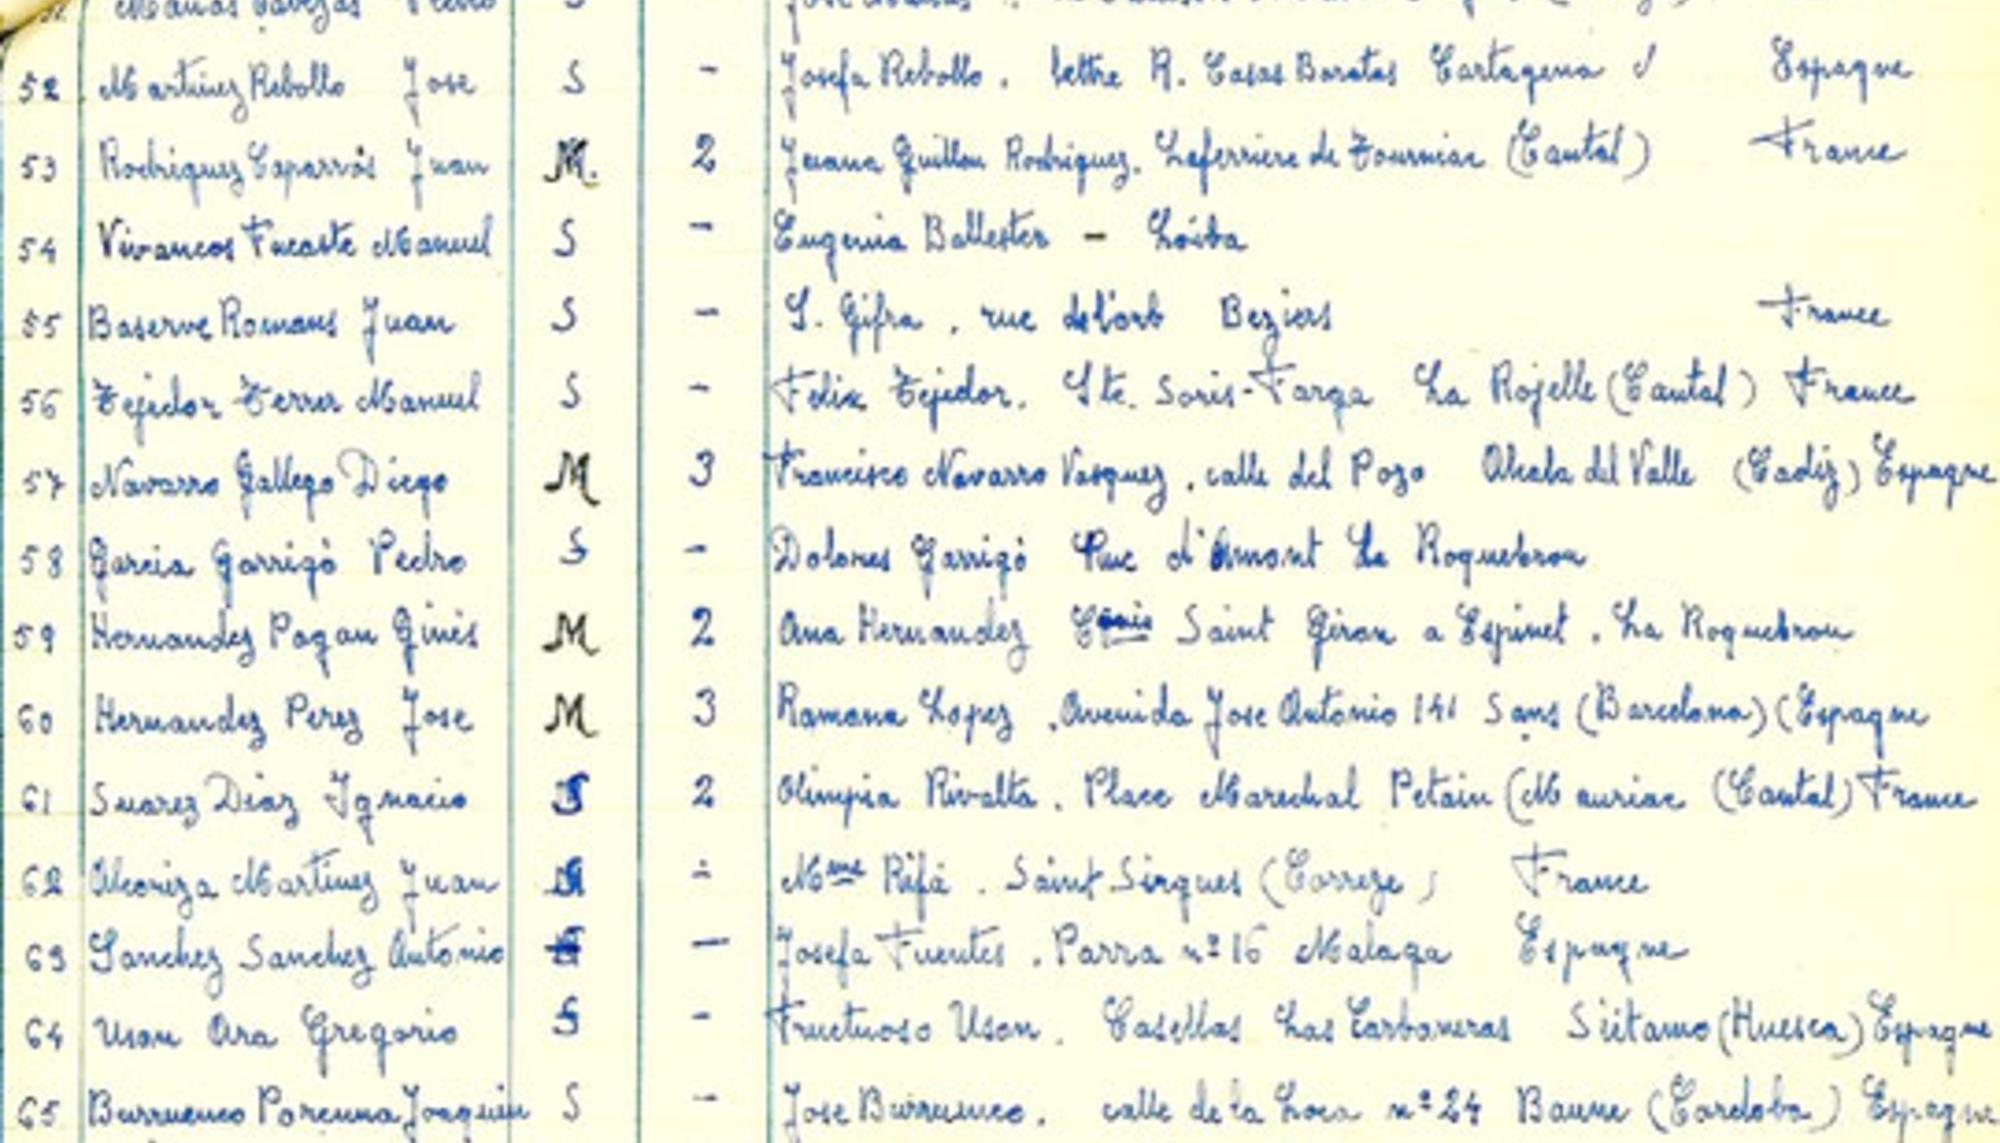 Pedro S
52 Martinez Rebollo Jose S - Josefa Rebollo. lettre R. Casas Baratas Cartagena Espagne
53 Rodriguez Caparrós Juan M. 2 Juana Guillen Rodriguez. Laferriere de Tourniac (Cantal) France
54 Vivancos Manuel S - Eugenia Ballester - Loiba
55 Baserve Romans Juan S - S. Gifra, rue de l'orb Beziers France
56 Tejedor Ferrer Manuel S - Felix Tejedor. Ste. Soris-Farga La Rojelle (Cantal) France
57 Navarro Gallego Diego M 3 Francisco Navarro Vasquez, calle del Pozo Alcala del Valle (Cadiz) Espagne
58 Garcia Garrigò Pedro S - Dolores Garrigò Rue d'Amont La Roquebrou
59 Hernandez Pagan Ginés M 2 Ana Hernandez Saint Giran a Espinet. La Roquebrou
60 Hernandez Perez Jose M 3 Ramona Lopez, Avenida Jose Antonio 141 Sans (Barcelona) (Espagne
61 Suarez Diaz Ignacio S 2 Olimpia Rivalta. Place Marechal Petain (Mauriac (Cantal) France
62 Alcoriza Martinez Juan - Mme Rifá. Saint Sirques (Correze) France
63 Sanchez Sanchez Antonio - Josefa Fuentes. Parra nº 16 Malaga Espagne
64 Uson Ara Gregorio S - Fructuoso Uson. Casellas Las Carbaneras Siétamo (Huesca) Espagne
65 Burrueuco Porcuna Joaquin S - Jose Burrueuco. calle de la Loca nº 24 Baune (Cordoba) Espagne